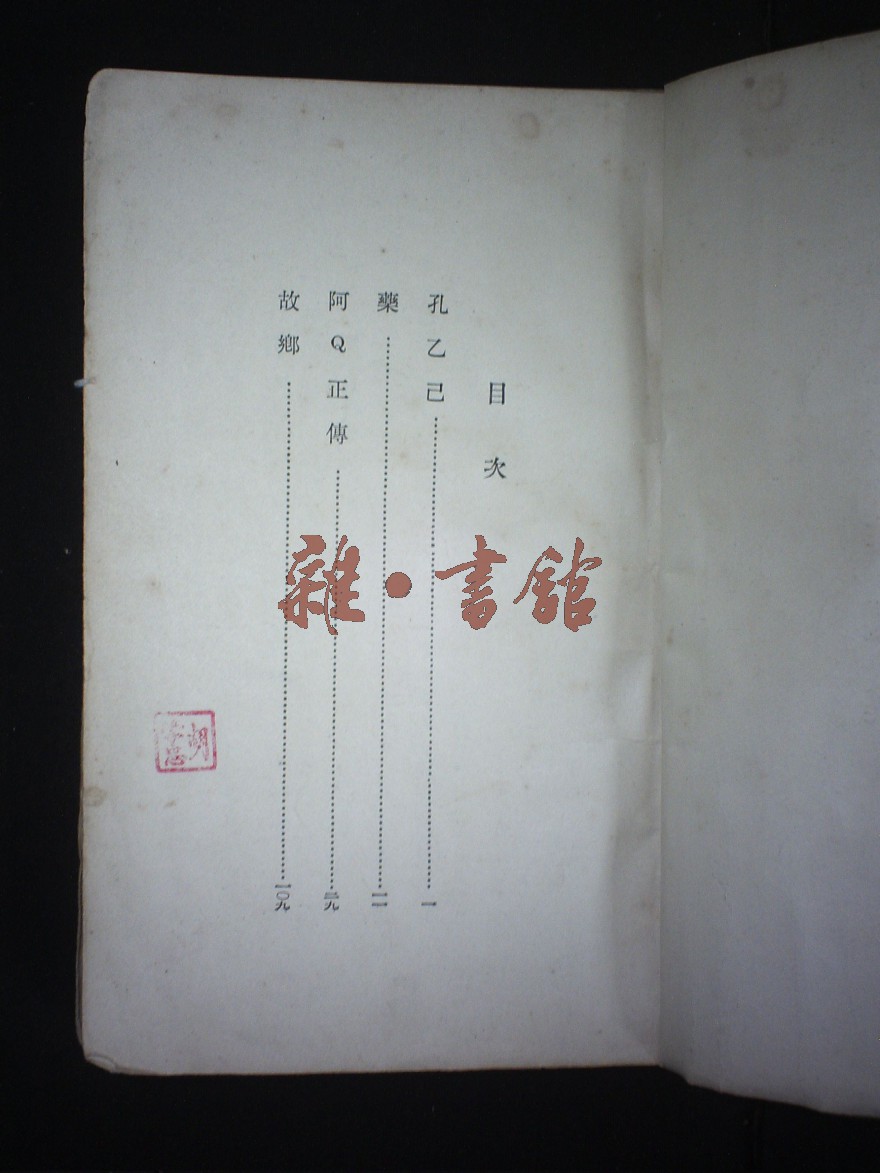 目次
孔乙己……一
藥……一一
阿Q正傳……二九
故鄉……一〇九
雜·書館
胡